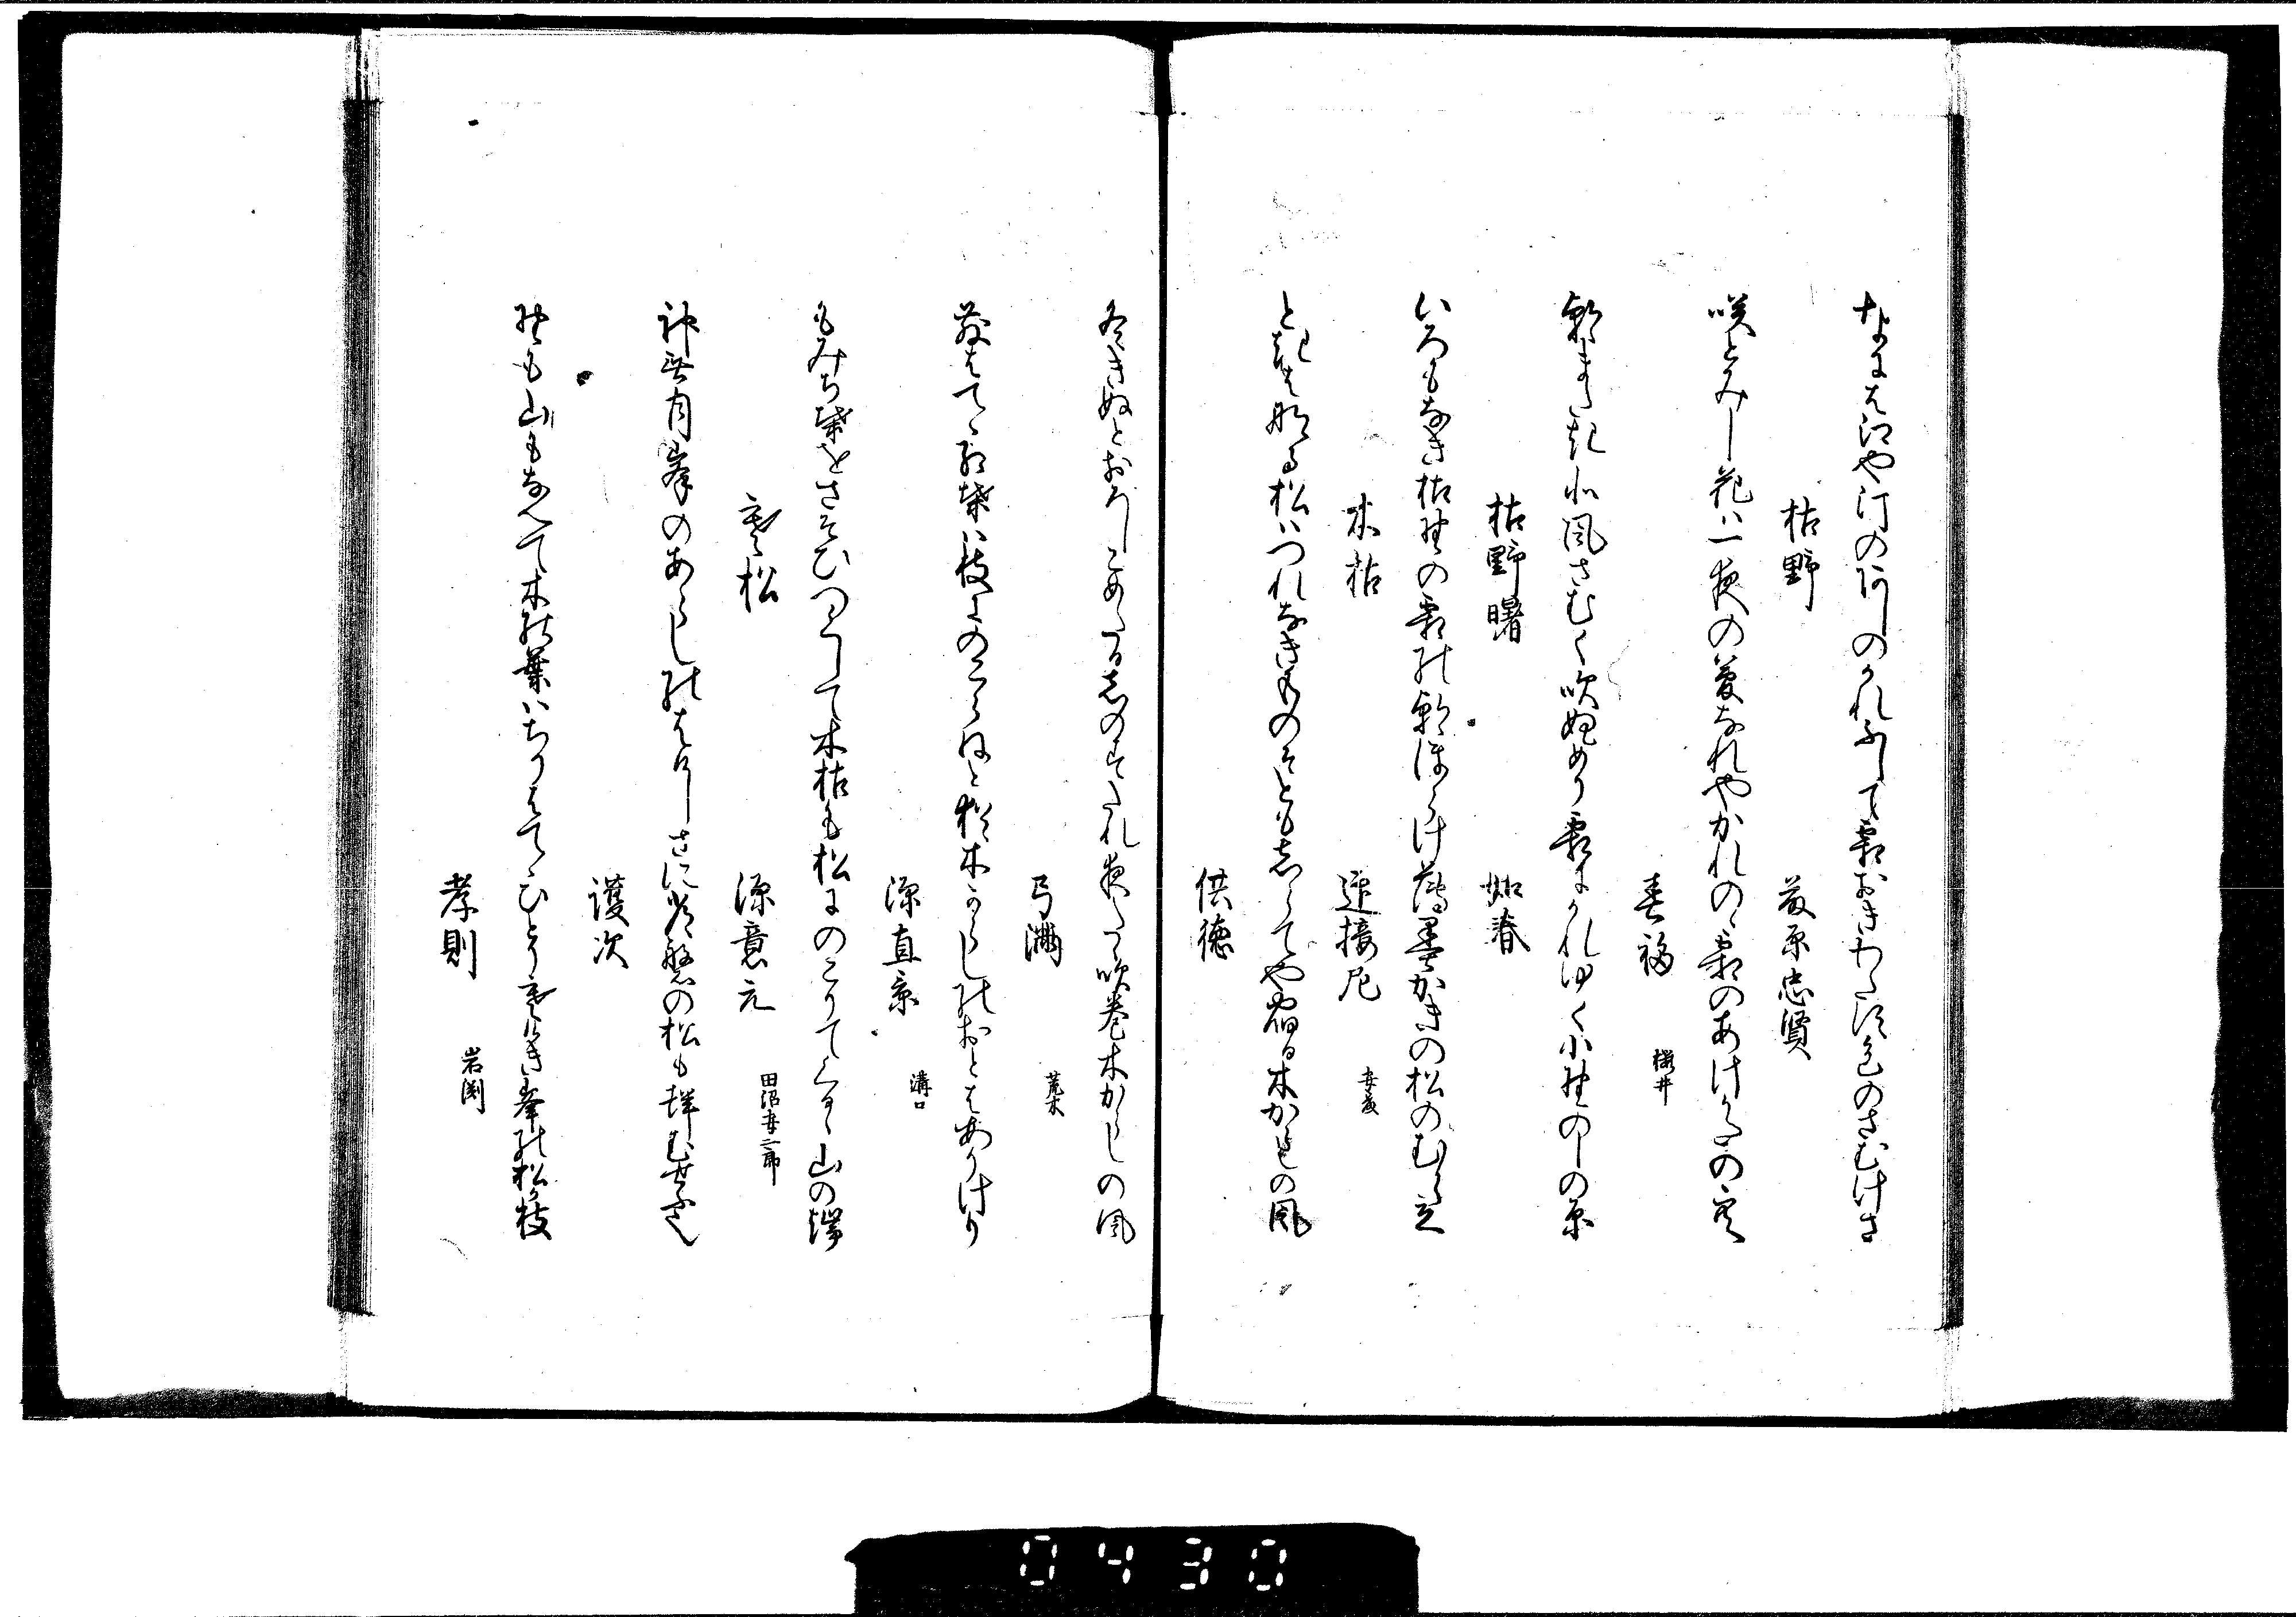 なにはえや汀のあしのかれふして霜おきわたす色のさむけさ
枯野　藤原忠賢
咲とみし花は一夜の夢なれやかれのゝ霜のあけかたの空
春福　桜井
朝またき小風さむく吹ぬめり霜にかれゆく小野のしの原
枯野曙　如春
いろもなき枯野の霜の朝ほらけ薄墨かきの松のむら立
木枯　迎接尼
ときはなる松はつれなきものそともしらてや宿る木からしの風
供徳
冬きぬとおろしこめたるしのすたれ夜たゝ吹巻木からしの風
弓満　荒木
散はてゝ紅葉は枝にのこらねと松木からしのおとはありけり
源直景　溝口
もみち葉をさそひつくして木枯も松にのこりてくるゝ山の端
寒松　源意元　田沼
神無月峯のあらしのはけしさに常盤の松も
護次
野も山もなへて木の葉はちりはてゝひとり寒けき峯の松か枝
孝則　岩渕
0430